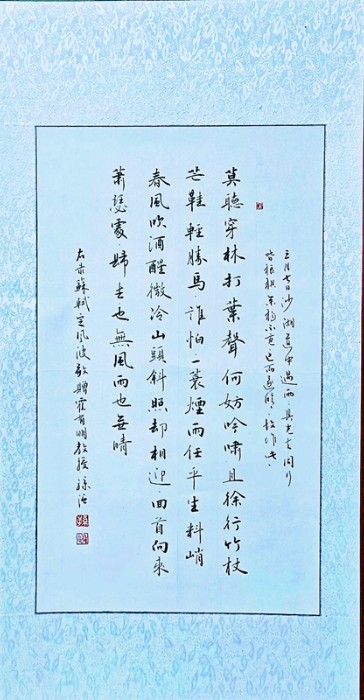 三月七日沙湖道中遇雨具先去同行
皆狼狈余独不觉已而遂晴故作此
莫聽穿林打葉聲何妨吟啸且徐行竹杖
芒鞋輕勝馬誰怕一蓑煙雨任平生料峭
春風吹酒醒微冷山頭斜照却相迎回首向來
萧瑟處歸去也無風雨也無晴
右录蘇軾定風波敬贈霍有明教授